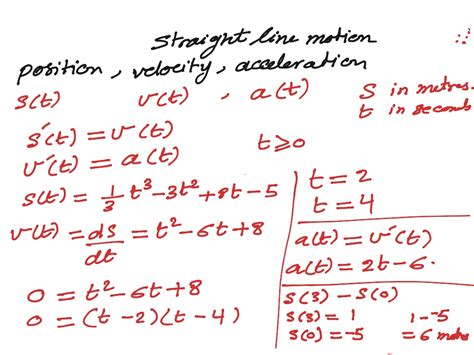 straight line motion
position, velocity, acceleration
s(t) v(t), a(t)
S in metres.
t in seconds
s'(t) = v(t)
v'(t) = a(t)
t ≥ 0
s(t) = 1/3 t³ - 3t² + 8t - 5
v(t) = ds/dt = t² - 6t + 8
0 = t² - 6t + 8
0 = (t - 2)(t - 4)
t = 2
t = 4
a(t) = v'(t)
a(t) = 2t - 6.
s(3) - s(0)
s(3) = 1 1 - -5
s(0) = -5 = 6 metres